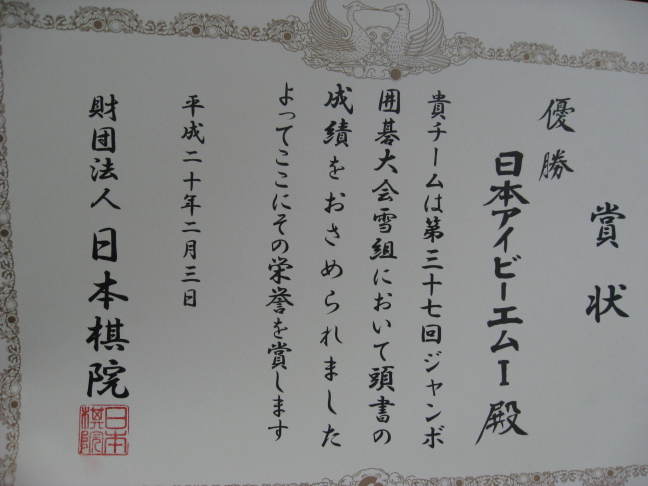 賞状
優勝
日本アイビーエムI殿
貴チームは第三十七回ジャンボ
囲碁大会雪組において頭書の
成績をおさめられました
よってここにその栄誉を賞します
平成二十年二月三日
財団法人日本棋院
日本
棋院